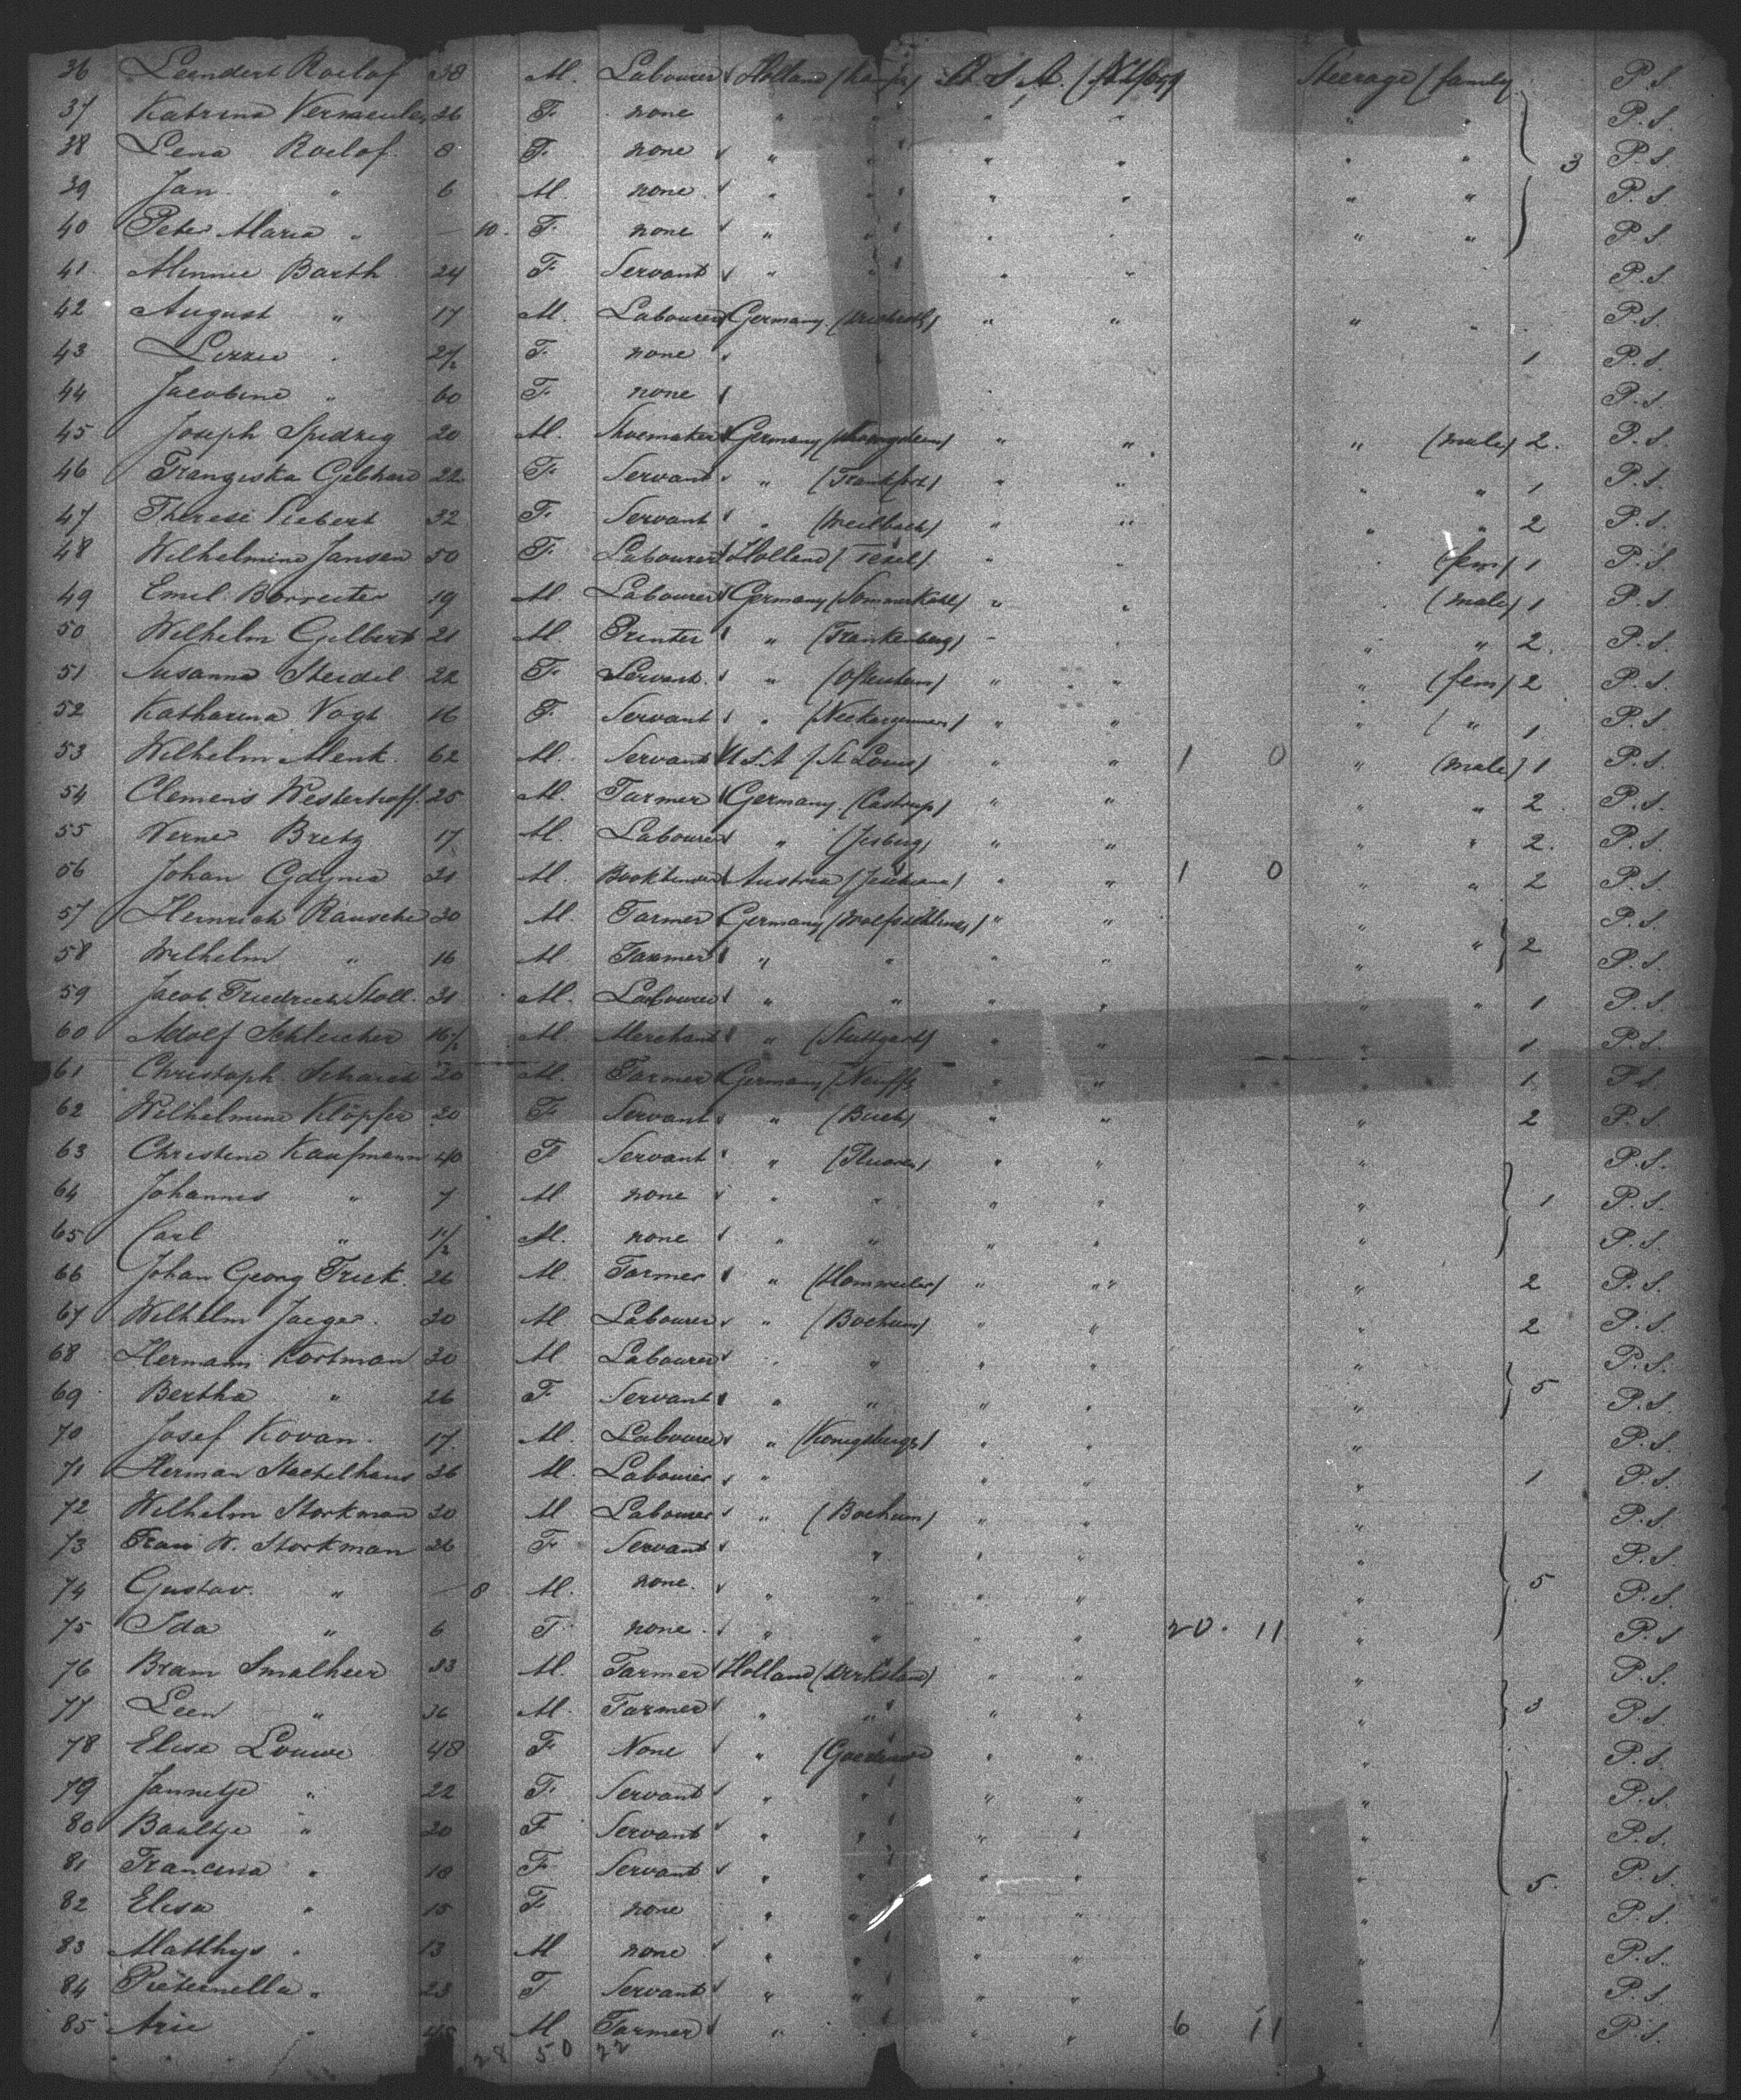 36 Leendert Roelof 38 M. Labourer Holland U.S.A. Steerage (family P.S.
37 Katrina Vermeulen 36 F. none " " " " " " P.S.
38 Lena Roelof 8 F. none " " " " " " 3 P.S.
39 Jan " 6 M. none " " " " " " P.S.
40 Peter Maria " — 10. F. none " " " " " " P.S.
41 Minnie Barth 24 F. Servant " " " " P.S.
42 August " 17 M. Labourer Germany " " " " P.S.
43 Lizzie " 2 1/2 F. none 1 P.S.
44 Jacobine " 60 F. none P.S.
45 Joseph Spidrig 20 M. Shoemaker Germany " " " (male) 2. P.S.
46 Franziska Gebhard 22 F. Servant " (Frankfort) " " " " 1 P.S.
47 Therese Siebert 32 F. Servant " (Weilbach) " " " " 2 P.S.
48 Wilhelmine Jansen 50 F. Labourer Holland (Texel) " " " (fem) 1 P.S.
49 Emil Borreiter 19 M. Labourer Germany (Sommerkahl) " " " (male) 1 P.S.
50 Wilhelm Gilbert 21 M. Printer " (Frankenberg) " " " " 2. P.S.
51 Susanna Steidel 22 F. Servant. " (Oftersheim) " " " (fem) 2 P.S.
52 Katharina Vogt 16 F. Servant " " " " ( " 1 P.S.
53 Wilhelm Menk 62 M. Servant U.S.A (St Louis) " " 1 0 " (male) 1 P.S.
54 Clemens Westerhoff. 25 M. Farmer Germany. (Castrop) " " " " 2 P.S.
55 Werner Bretz 17 M. Labourer " (Jesberg) " " " " 2. P.S.
56 Johan Gdynia 21 M. Bookbinder Austria " " 1 0 " " 2 P.S.
57 Heinrich Rausche 30 M. Farmer Germany " " " P.S.
58 Wilhelm " 16 M. Farmer " " " " " " 2 P.S.
59 Jacob Friedrich Stoll. 31 M. Labourer " " " " " " 1 P.S.
60 Adolf Schleicher 16 1/2 M. Merchant " (Stuttgart) " " " 1 P.S.
61 Christoph Schaich 20 M. Farmer Germany (Neuffe " " " 1 P.S.
62 Wilhelmine Klöpfer 20 F Servant " (Buch) " " " 2 P.S.
63 Christine Kaufmann 40 F Servant " " " " P.S.
64 Johannes " 7 M. none " " " " " 1 P.S.
65 Carl " 1 1/2 M. none " " " " " P.S.
66 Johan Georg Frick. 26 M. Farmer " " " " 2 P.S.
67 Wilhelm Jaeger. 30 M Labourer " (Bochum) " " " 2 P.S.
68 Hermann Kortman 30 M. Labourer " " " " " P.S.
69 Bertha " 26 F. Servant " " " " " 5 P.S.
70 Josef Kovan. 17. M. Labourer " (Konigsberg) " " " P.S.
71 Herman Stachelhaus 36 M. Labourer " " " " 1 P.S.
72 Wilhelm Storkman 30 M Labourer " (Bochum) " " " P.S.
73 Frau W. Storkman 26 F Servant " " " " P.S.
74 Gustav. " — 8 M. none. " " " " " 5 P.S.
75 Ida " 6 F. none. " " " " 20. 11 " P.S
76 Bram Smalheer 33 M. Farmer Holland " " " P.S.
77 Leen " 36 M. Farmer " " " " " 3 P.S.
78 Elise Louwe 48 F None " " " " P.S.
79 Jannetje " 22 F. Servant " " " " " P.S.
80 Baaltje " 20 F Servant " " " " " P.S.
81 Francina " 18 F Servant " " " " " P.S.
82 Elisa " 15 F none " " " " " 5. P.S.
83 Matthys " 13 M none " " " " " P.S.
84 Pieternella " 23 F Servant " " " " " P.S.
85 Arie " 45 M. Farmer " " " " 6 11 " P.S.
28 50 22